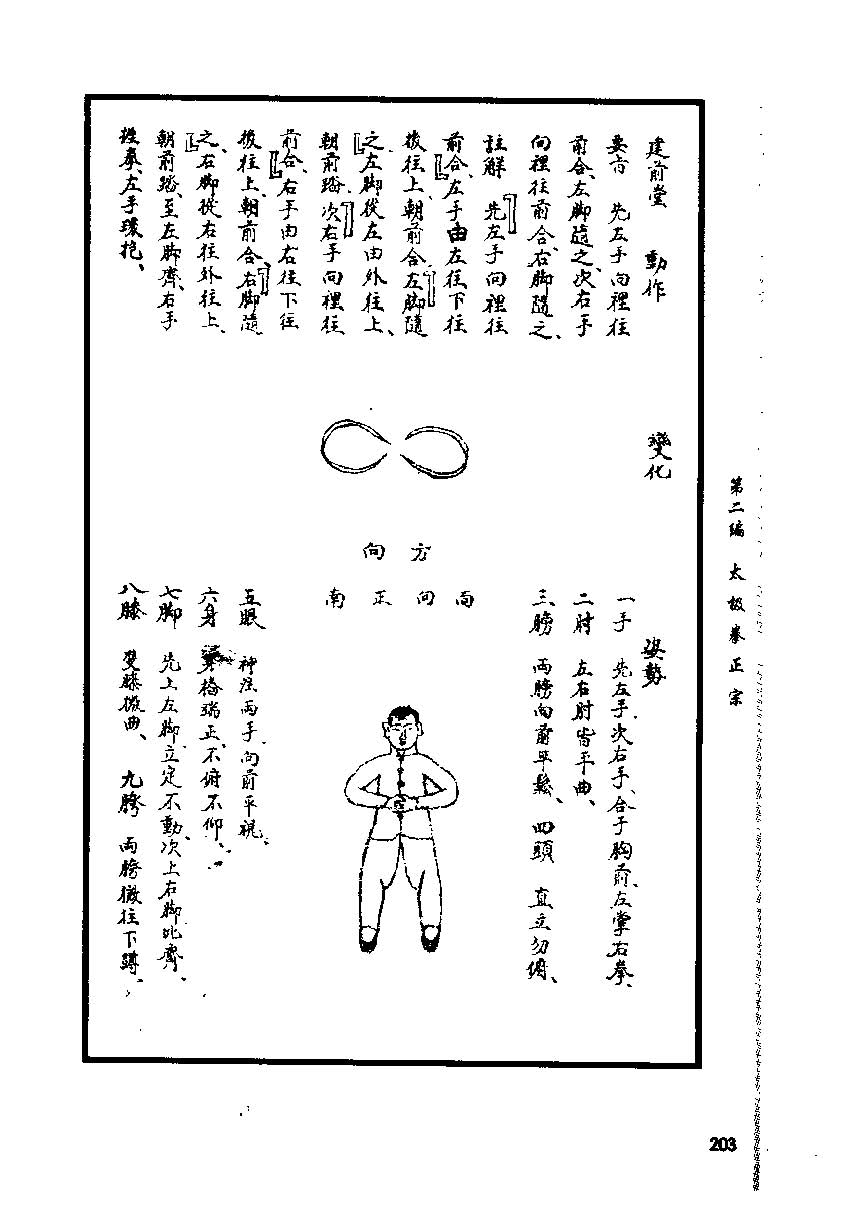 建前堂　動作
要旨　先左手向裡往
前合、左脚隨之、次右手
向裡往前合、右脚隨之、
註解　先左手向裡往
前合、『左手由左往下往
後往上、朝前合』左脚隨
之、『左脚從左由外往上、
朝前踏、』次右手向裡往
前合、『右手由右往下往
後往上、朝前合、』右脚隨
之、『右脚從右往外往上、
朝前踏、至左脚齊、右手
握拳、左手環抱、
變化
方向
面向正南
姿勢
一手　先左手、次右手、合于胸前、左掌右拳、
二肘　左右肘皆平曲、
三膀　両膀向前平鬆、　四頭　直立勿俯、
五眼　神注両手、向前平視、
六身　端正、不俯不仰、
七脚　先上左脚、立定不動、次上右脚比齊、
八膝　雙膝微曲、　九胯　両胯微往下蹲、
第二編　太极拳正宗
203